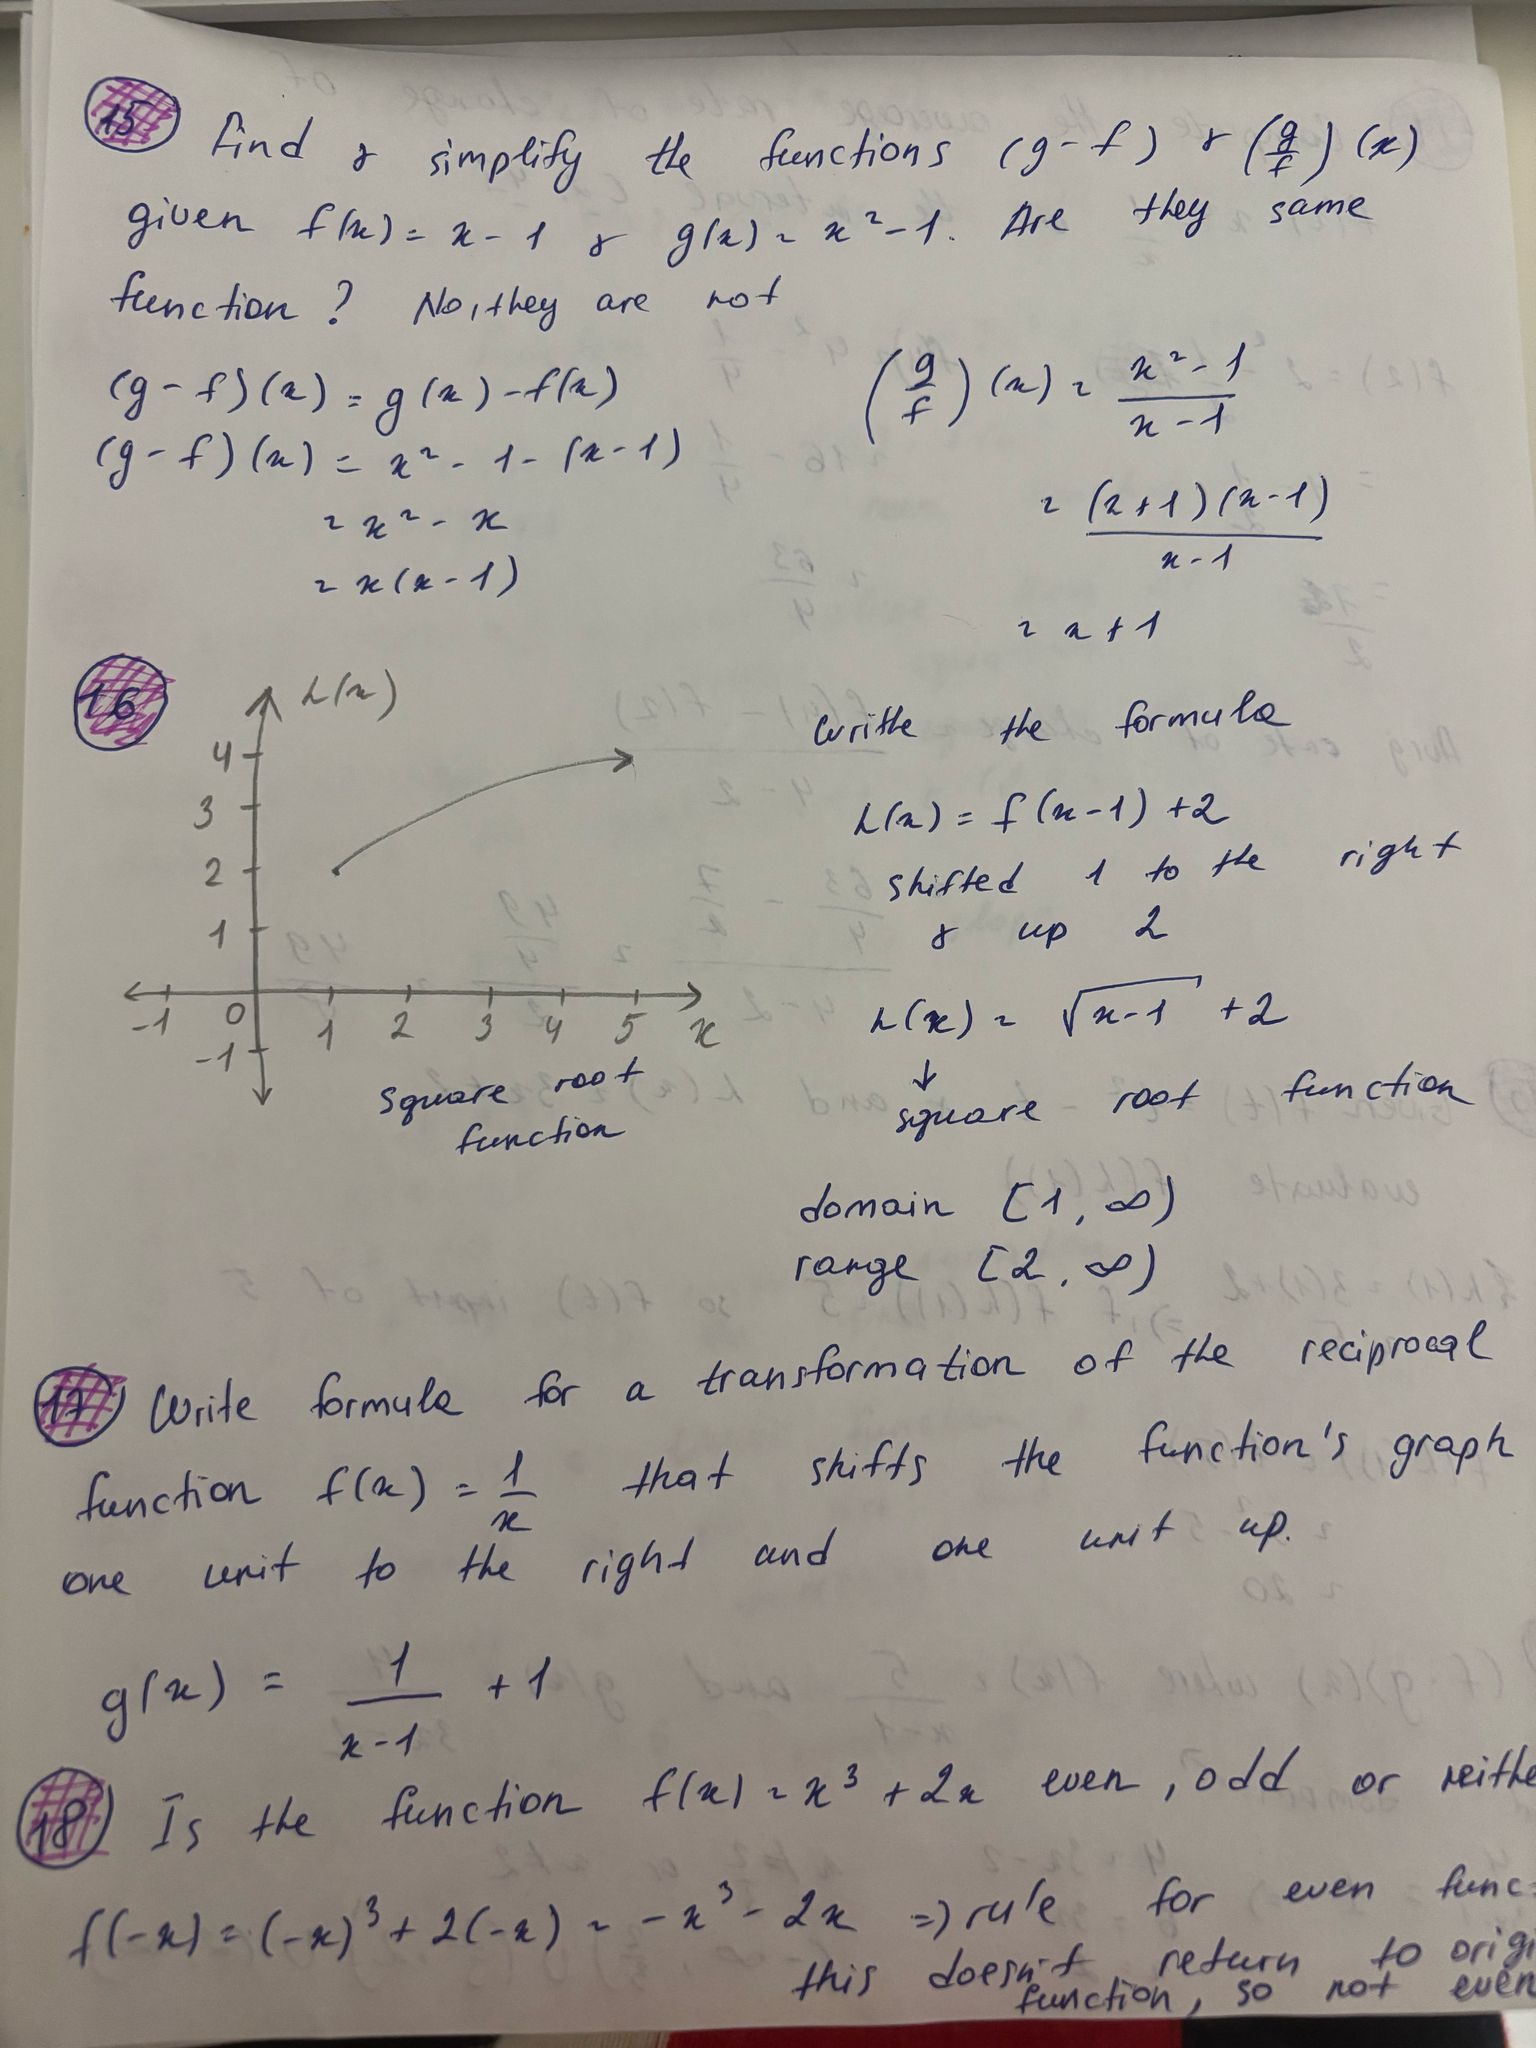 15 Find & simplify the functions (g-f) & (g/f)(x)
given f(x) = x-1 & g(x) = x²-1. Are they same
function? No, they are not
(g-f)(x) = g(x)-f(x)
(g-f)(x) = x²-1-(x-1)
= x²-x
= x(x-1)
(g/f)(x) = (x²-1)/(x-1)
= (x+1)(x-1)/(x-1)
= x+1
16
h(x)
4
3
2
1
-1 0 1 2 3 4 5 x
-1
Square root
function
Writhe the formula
h(x) = f(x-1)+2
shifted 1 to the right
& up 2
h(x) = √(x-1) +2
↓
square root function
domain [1, ∞)
range [2, ∞)
17 Write formula for a transformation of the reciprocal
function f(x) = 1/x that shifts the function's graph
one unit to the right and one unit up.
g(x) = 1/(x-1) +1
18 Is the function f(x) = x³+2x even, odd or neithe
f(-x) = (-x)³+2(-x) = -x³-2x => rule for even func-
this doesn't return to origi
function, so not even